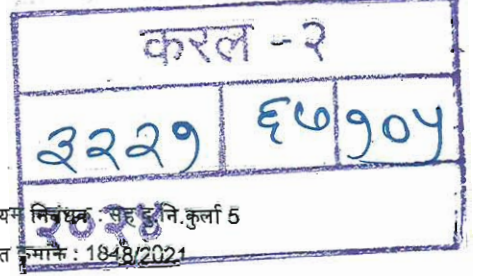 करल - २
३२२१ ६७ १०५
यम निबंधक : सह दु.नि.कुर्ला 5
२०२४
त क्रमांक : 1848/2021